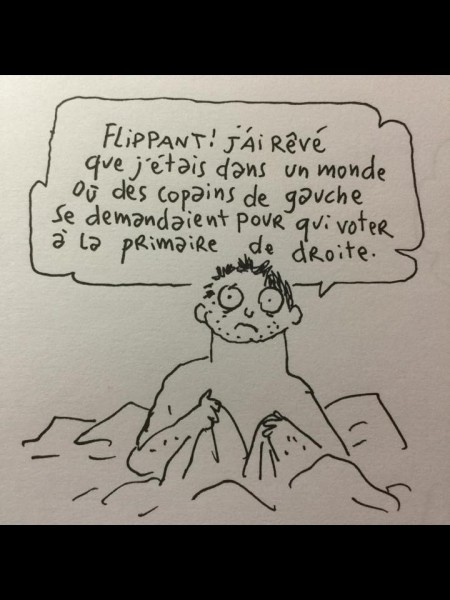 FLiPPANT! J'Ai RÊVÉ
que j'étais dans un monde
Où des copains de gauche
Se demandaient pour qui voter
à la primaire de droite.